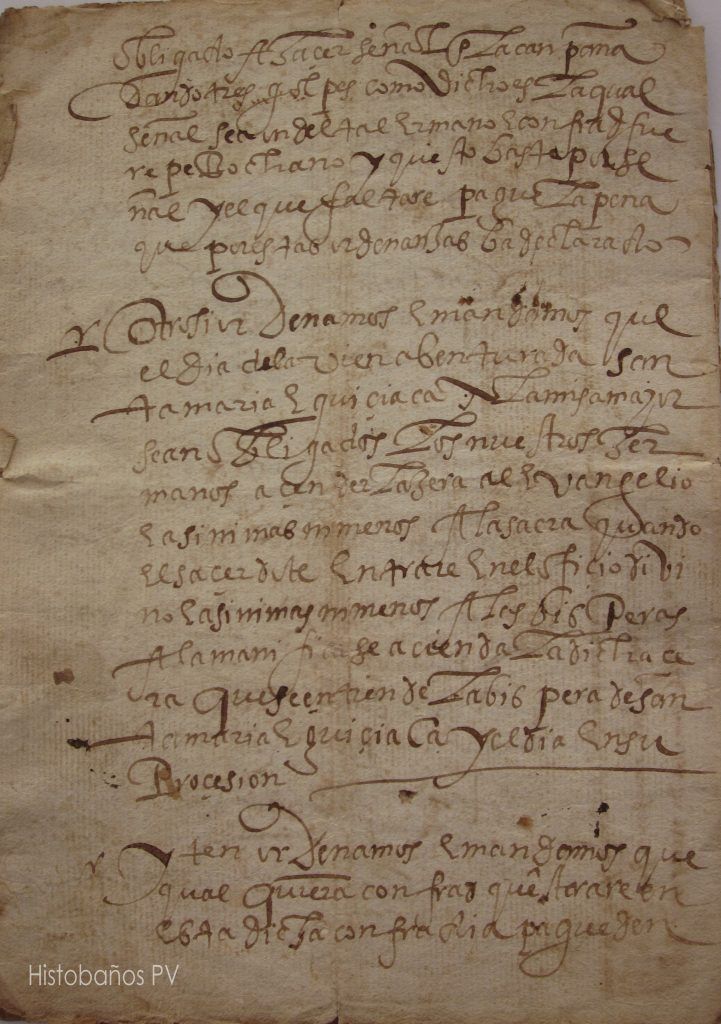 obligado A hacer señal co la canpana
dando tres golpes como dicho es la qual
señal sea in del tal ermano e confrad fue
re pe
ñal y el que faltare pague la pena
que por estas ordenansas ba declarado
Otrosi ordenamos e mandamos que
el dia de la vien abenturada san
ta maria equiçiaca y la misa mayor
sean obligados los nuestros her
manos a çender la zera al evangelio
e asi ni mas ni menos A la sacra quando
el saçerdote entrare en el ofiçio divi
no e asi ni mas ni menos A las bisperas
A la manifica se acienda la dicha ce
ra que se entiende la bispera de san
ta maria equiçiaca y el dia en su
Proçesion
yten ordenamos e mandamos que
qual quiera confrad que entrare en
esta dicha confradia pague den
Histobaños PV